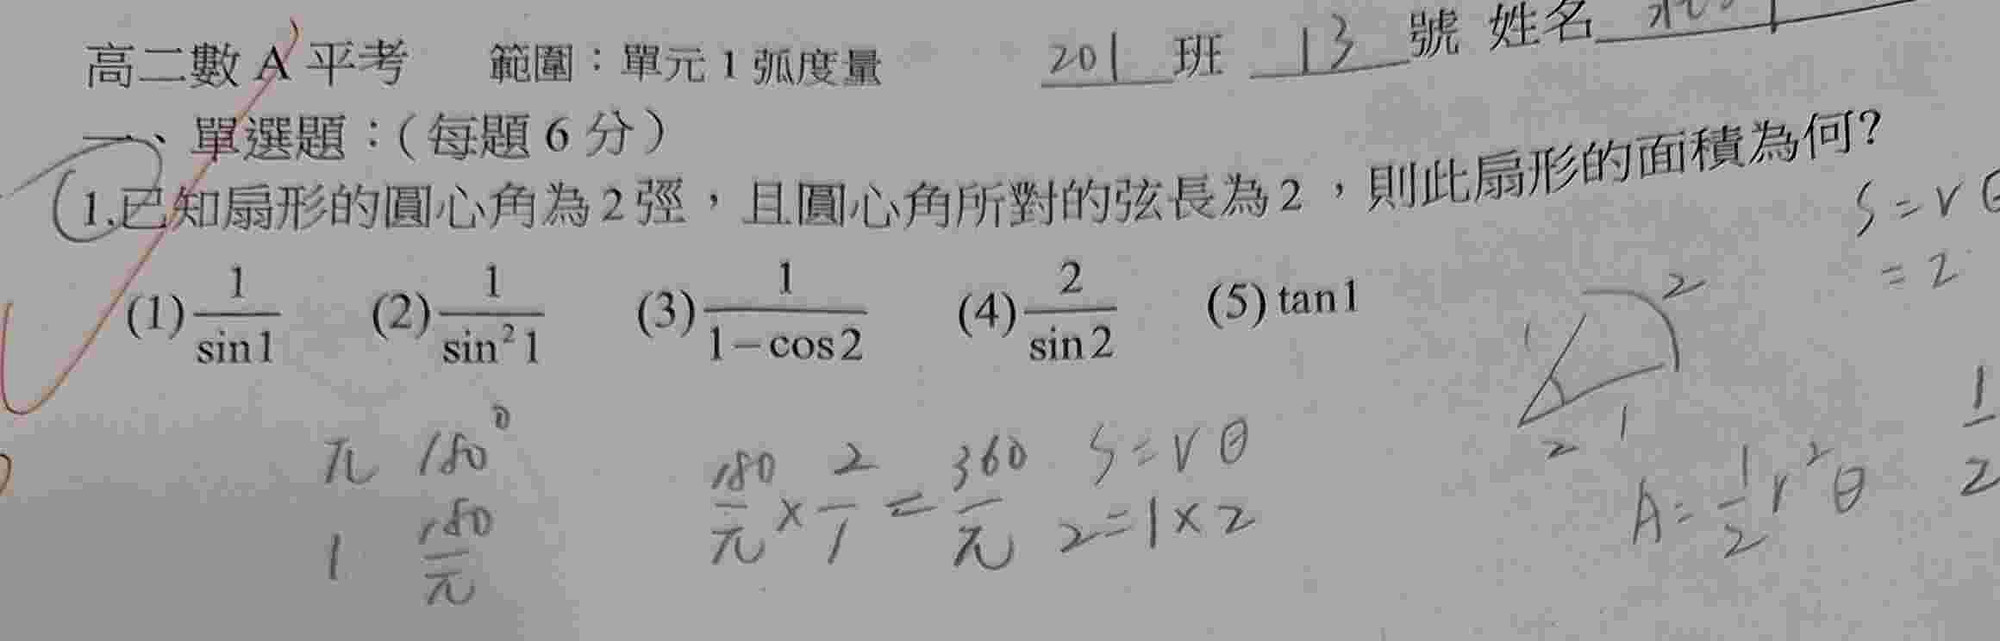 高二數 A 平考 範圍：單元 1 弧度量 201 班 13 號 姓名
一、單選題：（每題 6 分）
1.已知扇形的圓心角為 2 弳，且圓心角所對的弦長為 2 ，則此扇形的面積為何?
S = r θ
= 2
(1) 1/sin1 (2) 1/sin²1 (3) 1/(1−cos2) (4) 2/sin2 (5) tan1
1 2
2 1
π 180°
1 180/π
180/π × 2/1 = 360/π
S = r θ
2 = 1 × 2
A = 1/2 r² θ
1/2